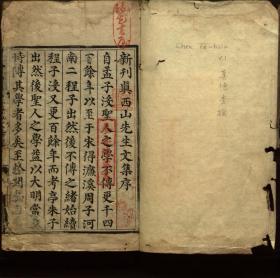 新刊眞西山先生文集序
自孟子沒聖人之學不傳更千四
百餘年以至于宋得濂溪周子河
南二程子出然後不傳之緒始續
程子沒又更百餘年而考亭朱子
出然後聖人之學益以大明當
時傳其學者多矣至
Chen Te-hsiu